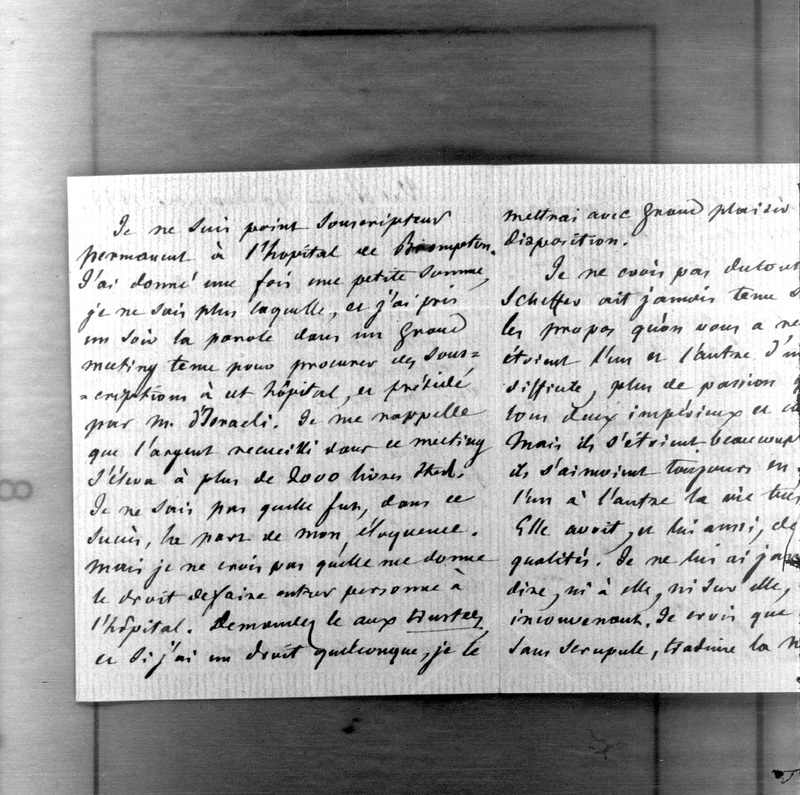 Je ne suis point souscripteur
permanent à l'hôpital de Brompton.
J'ai donné une fois une petite somme,
je ne sais plus laquelle, et j'ai pris
un soir la parole dans un grand
meeting tenu pour procurer des sous=
=criptions à cet hôpital, et présidé
par M. d'Israeli. Je me rappelle
que l'argent recueilli dans ce meeting
s'éleva à plus de 2000 livres Sterl.
Je ne sais pas quelle fut, dans ce
succès, la part de mon éloquence.
Mais je ne crois pas qu'elle me donne
le droit de faire entrer personne à
l'hôpital. Demandez le aux Trustees,
et si j'ai un droit quelconque, je le
mettrai avec grand plaisir
disposition.
Je ne crois pas du tout
Scheffer ait jamais tenu
les propos qu'on vous a
étoient l'un et l'autre d'
difficile, plus de passion
tous deux impérieux et
Mais ils s'étoient beaucoup
ils s'aimoient toujours en
l'un à l'autre la vie très
Elle avoit, et lui aussi, de
qualités. Je ne lui ai
dire, ni à elle, ni sur elle,
inconvenant. Je crois que
sans scrupule, traduire la
8